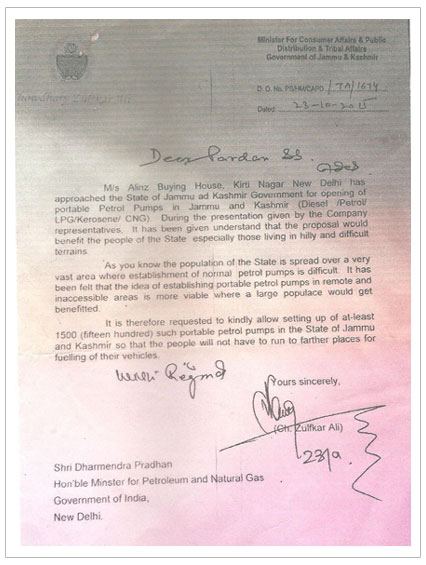 Minister For Consumer Affairs & Public
Distribution & Tribal Affairs
Government of Jammu & Kashmir
Chowdhary Zulfkar Ali
D.O.No. PS/HM/CAPD/TA/1674
Dated 23-10-2015
Dear Pardan
M/s Alinz Buying House, Kirti Nagar New Delhi has
approached the State of Jammu ad Kashmir Government for opening of
portable Petrol Pumps in Jammu and Kashmir (Diesel /Petrol/
LPG/Kerosene/ CNG). During the presentation given by the Company
representatives. It has been given understand that the proposal would
benefit the people of the State especially those living in hilly and difficult
terrains
As you know the population of the State is spread over a very
vast area where establishment of normal petrol pumps is difficult. It has
been felt that the idea of establishing portable petrol pumps in remote and
inaccessible areas is more viable where a large populace would get
benefitted.
It is therefore requested to kindly allow setting up of at-least
1500 (fifteen hundred) such portable petrol pumps in the State of Jammu
and Kashmir so that the people will not have to run to farther places for
fuelling of their vehicles.
Yours sincerely,
(Ch. Zulfkar Ali)
Shri Dharmendra Pradhan
Hon'ble Minster for Petroleum and Natural Gas
Government of India,
New Delhi.